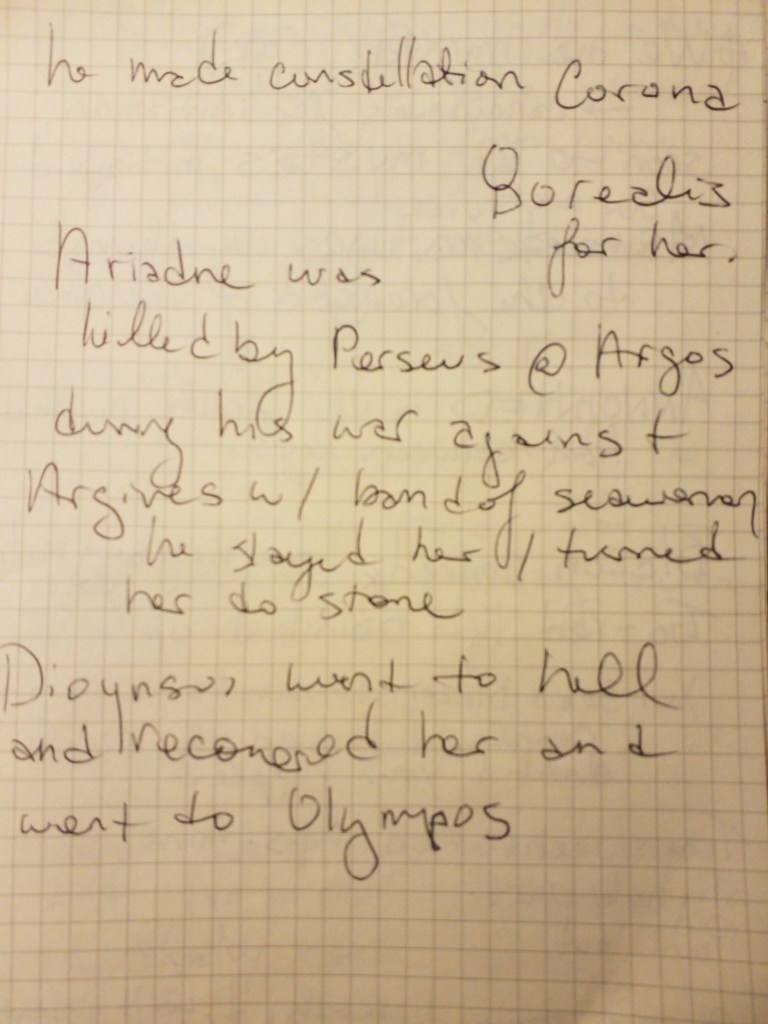 he made constellation Corona
Borealis
for her.
Ariadne was
killed by Perseus @ Argos
during his war against
Argives w/ band of seawomen
he slayed her / turned
her do stone
Dioynsus went to hell
and recovered her and
went do Olympos